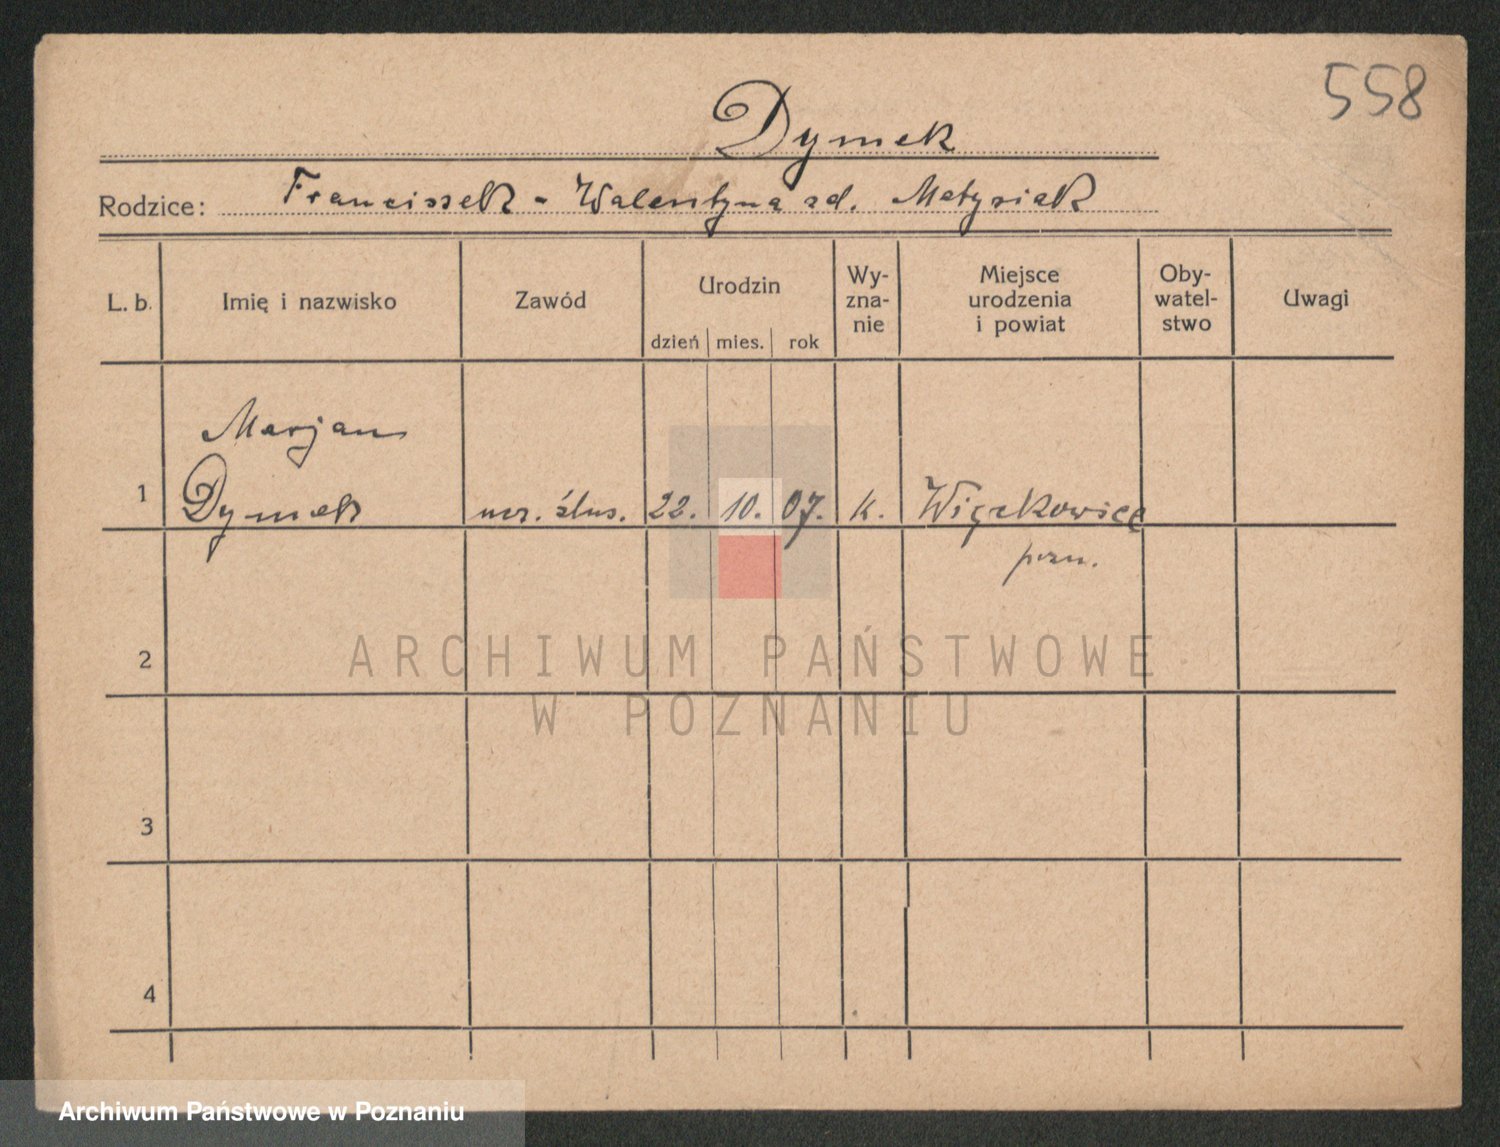 558
Dymek
Rodzice: Franciszek - Walentyna zd. Matysiak
L. b. Imię i nazwisko Zawód Urodzin dzień mies. rok Wy-zna-nie Miejsce urodzenia i powiat Oby-watel-stwo Uwagi
Marjan
1 Dymek ucz. ślus. 22. 10. 07. k. Więckowice
pozn.
2
ARCHIWUM PAŃSTWOWE
W POZNANIU
3
4
Archiwum Państwowe w Poznaniu